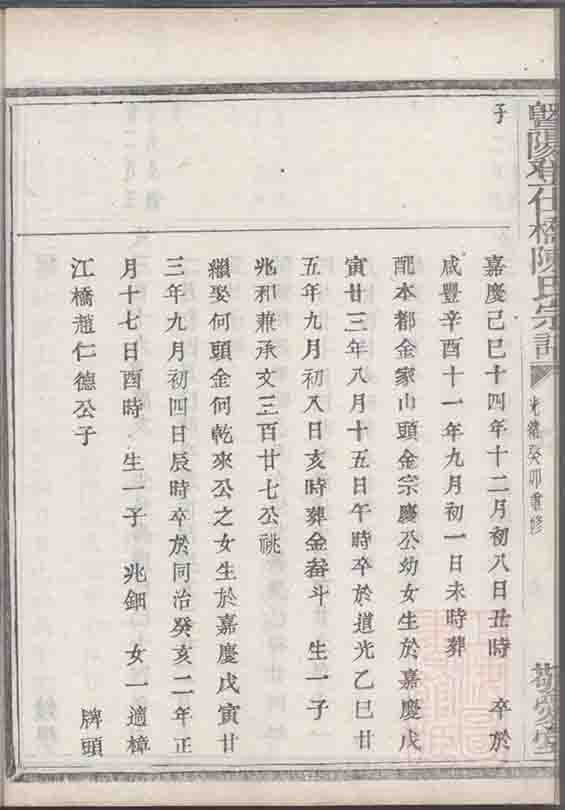 暨陽孝仁橋陳氏宗譜
光緒癸卯重修
敬愛堂
子
嘉慶己巳十四年十二月初八日丑時　卒於
咸豐辛酉十一年九月初一日未時葬
配本都金家山頭金宗慶公幼女生於嘉慶戊
寅廿三年八月十五日午時卒於道光乙巳廿
五年九月初八日亥時葬金畚斗　生一子
兆邪兼承文三百廿七公祧
繼娶何頭金何乾來公之女生於嘉慶戊寅廿
三年九月初四日辰時卒於同治癸亥二年正
月十七日酉時　生一子　兆鈿　女一適樟
江橋趙仁德公子　牌頭